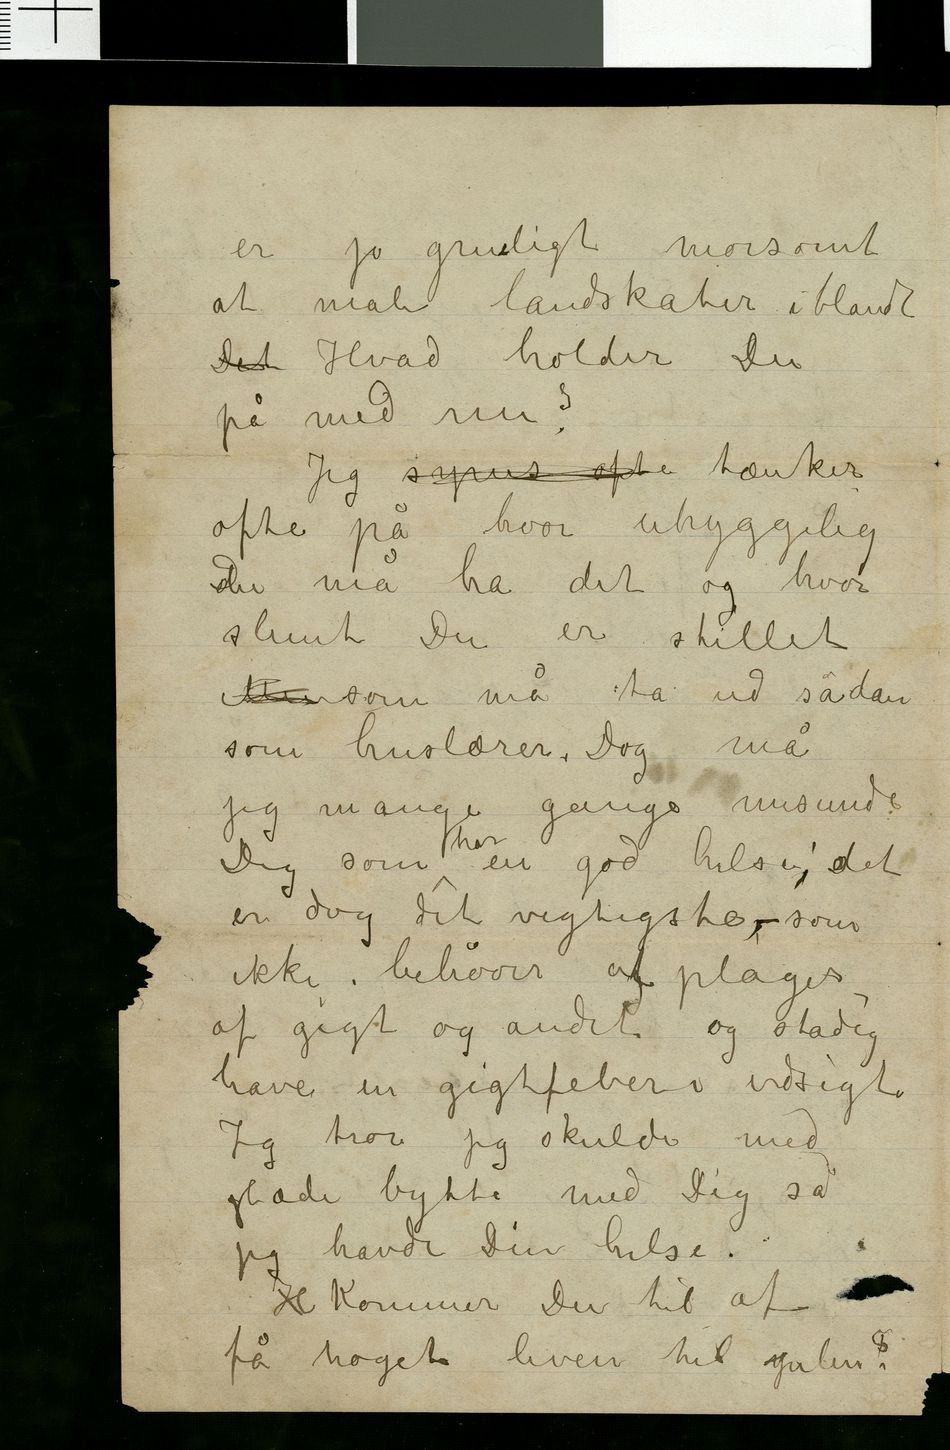 er jo gruligt morsomt
at male landskaber iblandt
Det Hvad holder Du
på med nu?
Jeg synes ofte tænker
ofte på hvor uhyggelig
Du må ha det og hvor
slemt Du er stillet
Men som må ta ud sådan
som huslærer. Dog må
jeg mange gange misunde
Dig som har en god helse, det
er dog det vigtigste, – som
ikke behøver at plages
af gigt og andet og stadig
have en gigtfeber i udsigt.
Jeg tror jeg skulde med
glæde bytte med Dig så
jeg havde Din helse.
H Kommer Du til at
få noget leven til julen?